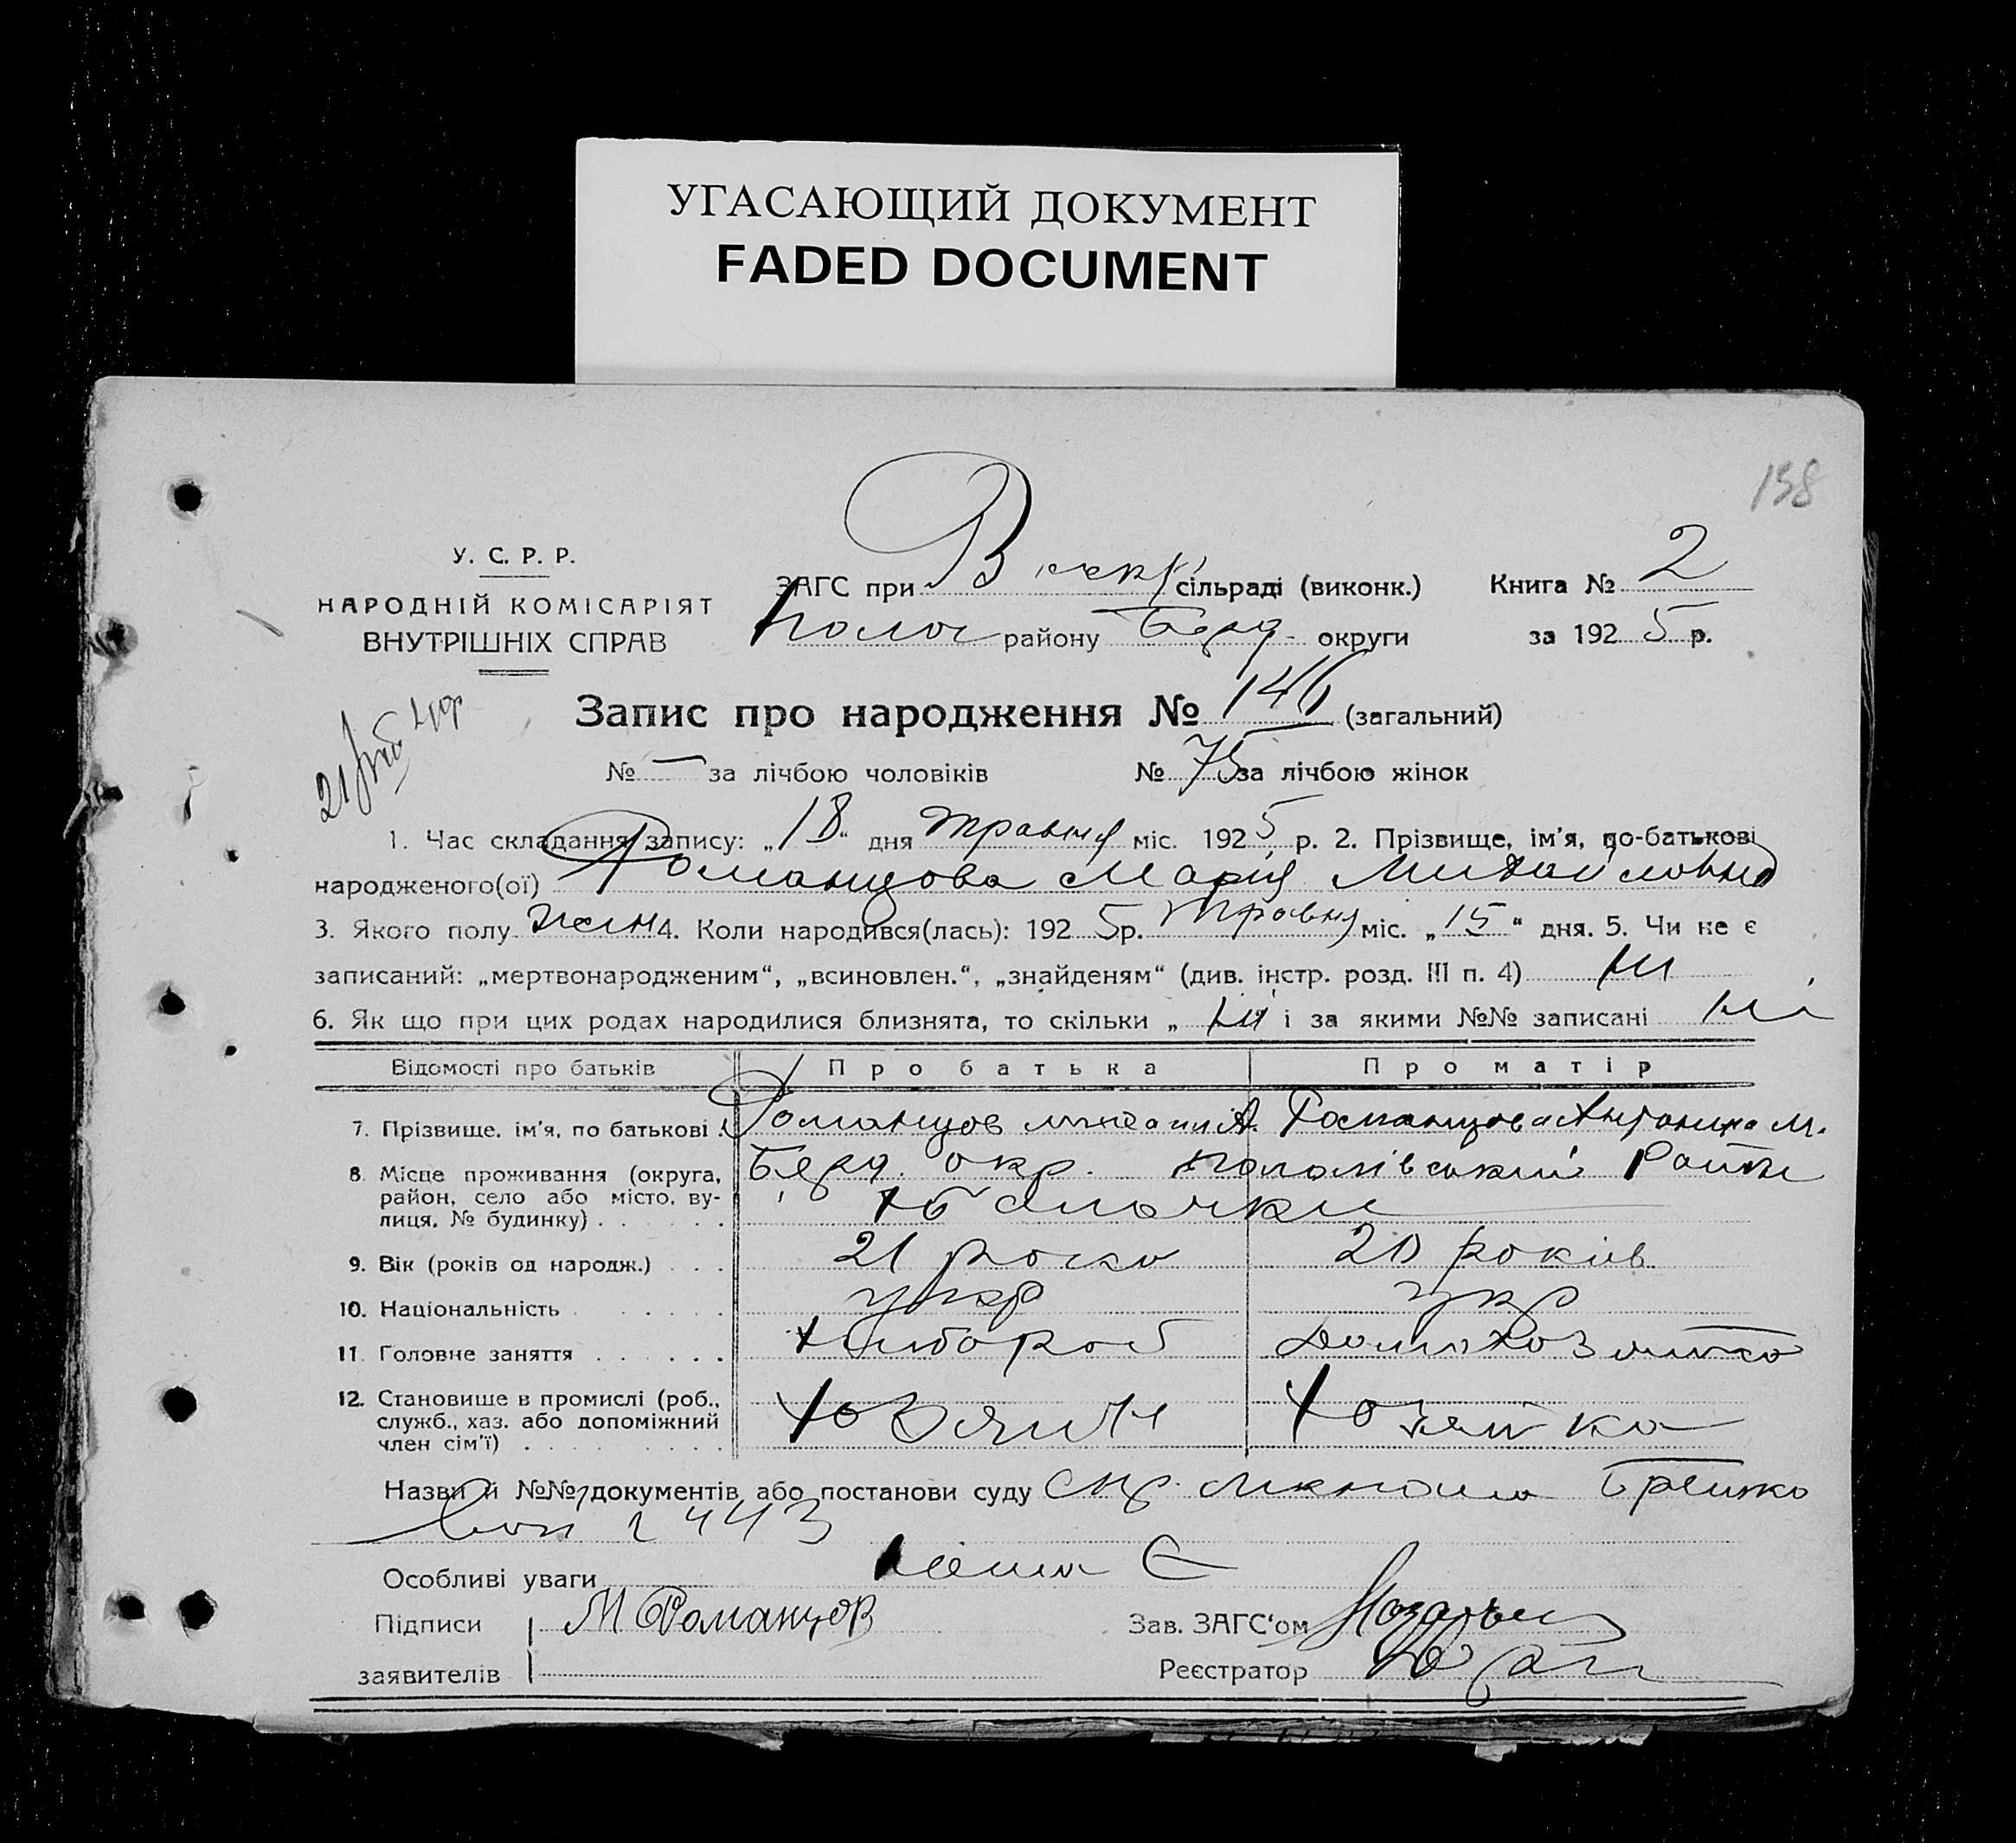 УГАСАЮЩИЙ ДОКУМЕНТ
FADED DOCUMENT
158
У. С. Р. Р.
НАРОДНІЙ КОМІСАРІЯТ
ВНУТРІШНІХ СПРАВ
ЗАГС при В сільраді (виконк.) Книга № 2
Полог району Берд. округи за 1925 р.
Запис про народження № 146 (загальний)
№ — за лічбою чоловіків № 75 за лічбою жінок
1. Час складання запису: „18“ дня травня міс. 1925 р. 2. Прізвище, ім'я, по-батькові
народженого(ої) Романцова Марія Михайловна
3. Якого полу жін 4. Коли народився(лась): 1925 р. травня міс. „15“ дня. 5. Чи не є
записаний: „мертвонародженим“, „всиновлен.“, „знайденям“ (див. інстр. розд. III п. 4) ні
6. Як що при цих родах народилися близнята, то скільки „ ні і за якими №№ записані ні
Відомості про батьків Про батька Про матір
7. Прізвище, ім'я, по батькові Романцов Михаил А. Романцова Антонина М.
8. Місце проживання (округа, район, село або місто, вулиця, № будинку) Берд. окр. Пологівський Район
х Балочки
9. Вік (років од народж.) 21 року 20 років
10. Національність укр укр
11. Головне заняття хлібороб домохозяйка
12. Становище в промислі (роб., служб., хаз. або допоміжний член сім'ї) хозяин хозяйка
Назви й №№ документів або постанови суду
2443
Особливі уваги нема Є
Підписи М Романцов Зав. ЗАГС'ом
заявителів Реєстратор